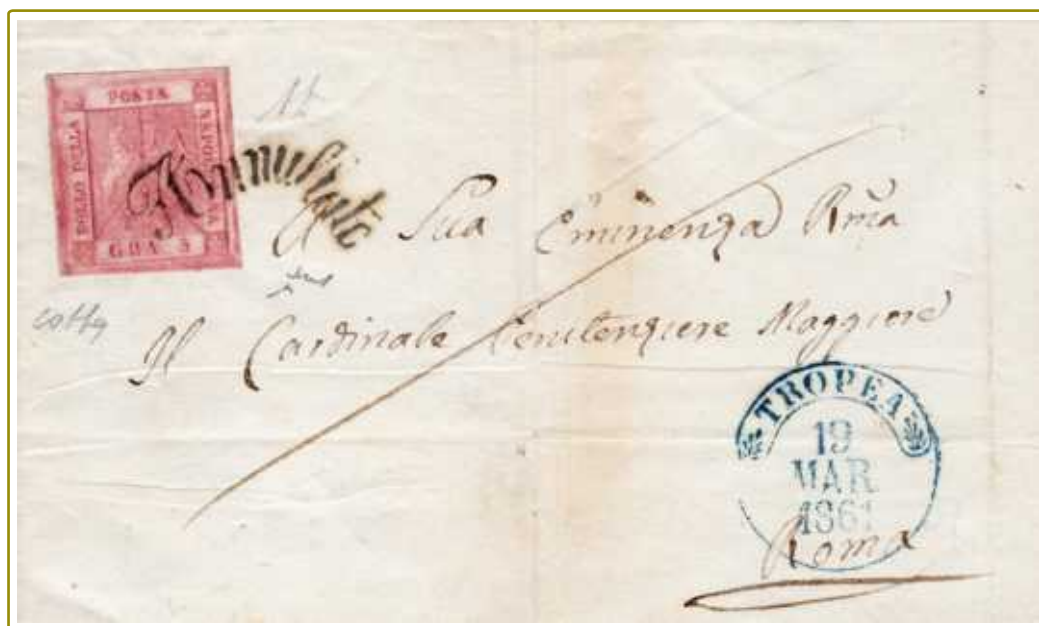 POSTA
BOLLO DELLA
NAPOLETANA
GRA 5
Annullato
A Sua Eminenza Rm̃a
Il Cardinale Penitenziere Maggiore
TROPEA
19
MAR
1861
Roma